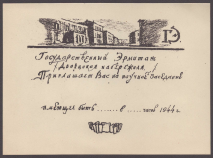 ГЭ
Государственный Эрмитаж
/Дворцовая набережная/
Приглашает Вас на научное заседание
имеющее быть......в......часов 1944 г.